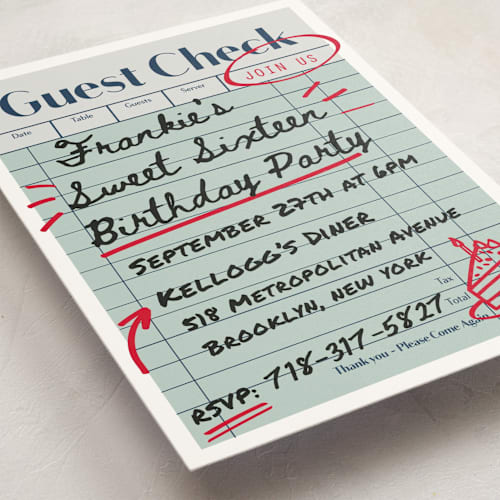 Guest Check
JOIN US
Date Table Guests Server
Frankie's
Sweet Sixteen
Birthday Party
SEPTEMBER 27TH AT 6PM
KELLOGG'S DINER
518 METROPOLITAN AVENUE
BROOKLYN, NEW YORK
Tax
Total
RSVP: 718-317-5827
Thank you - Please Come Again